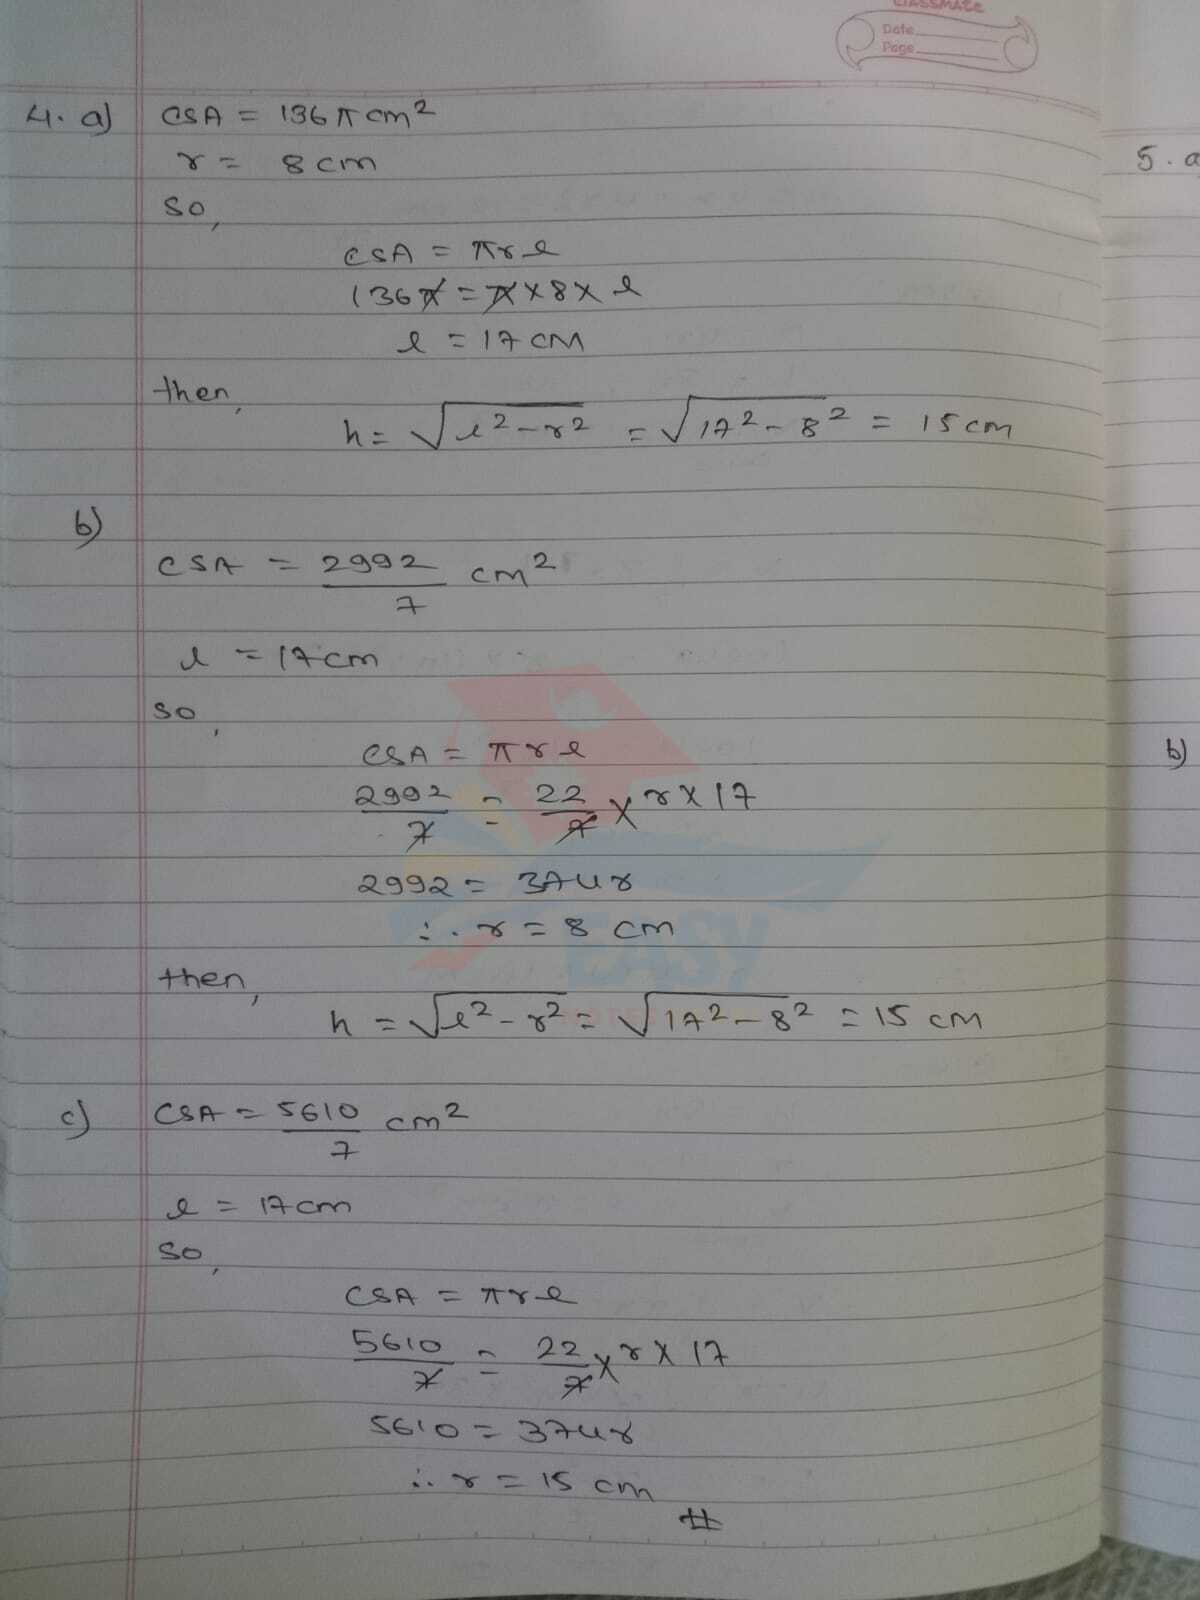 CLASSMATE
Date
Page
4. a) CSA = 136π cm²
r = 8 cm
so,
CSA = πrl
136π = π×8×l
l = 17 cm
then,
h = √(l²-r²) = √(17²-8²) = 15 cm
b)
CSA = 2992/7 cm²
l = 17 cm
so,
CSA = πrl
2992/7 = 22/7 × r × 17
2992 = 374r
∴ r = 8 cm
then,
h = √(l²-r²) = √(17²-8²) = 15 cm
c) CSA = 5610/7 cm²
l = 17 cm
so,
CSA = πrl
5610/7 = 22/7 × r × 17
5610 = 374r
∴ r = 15 cm
#
5. a
b)
EASY